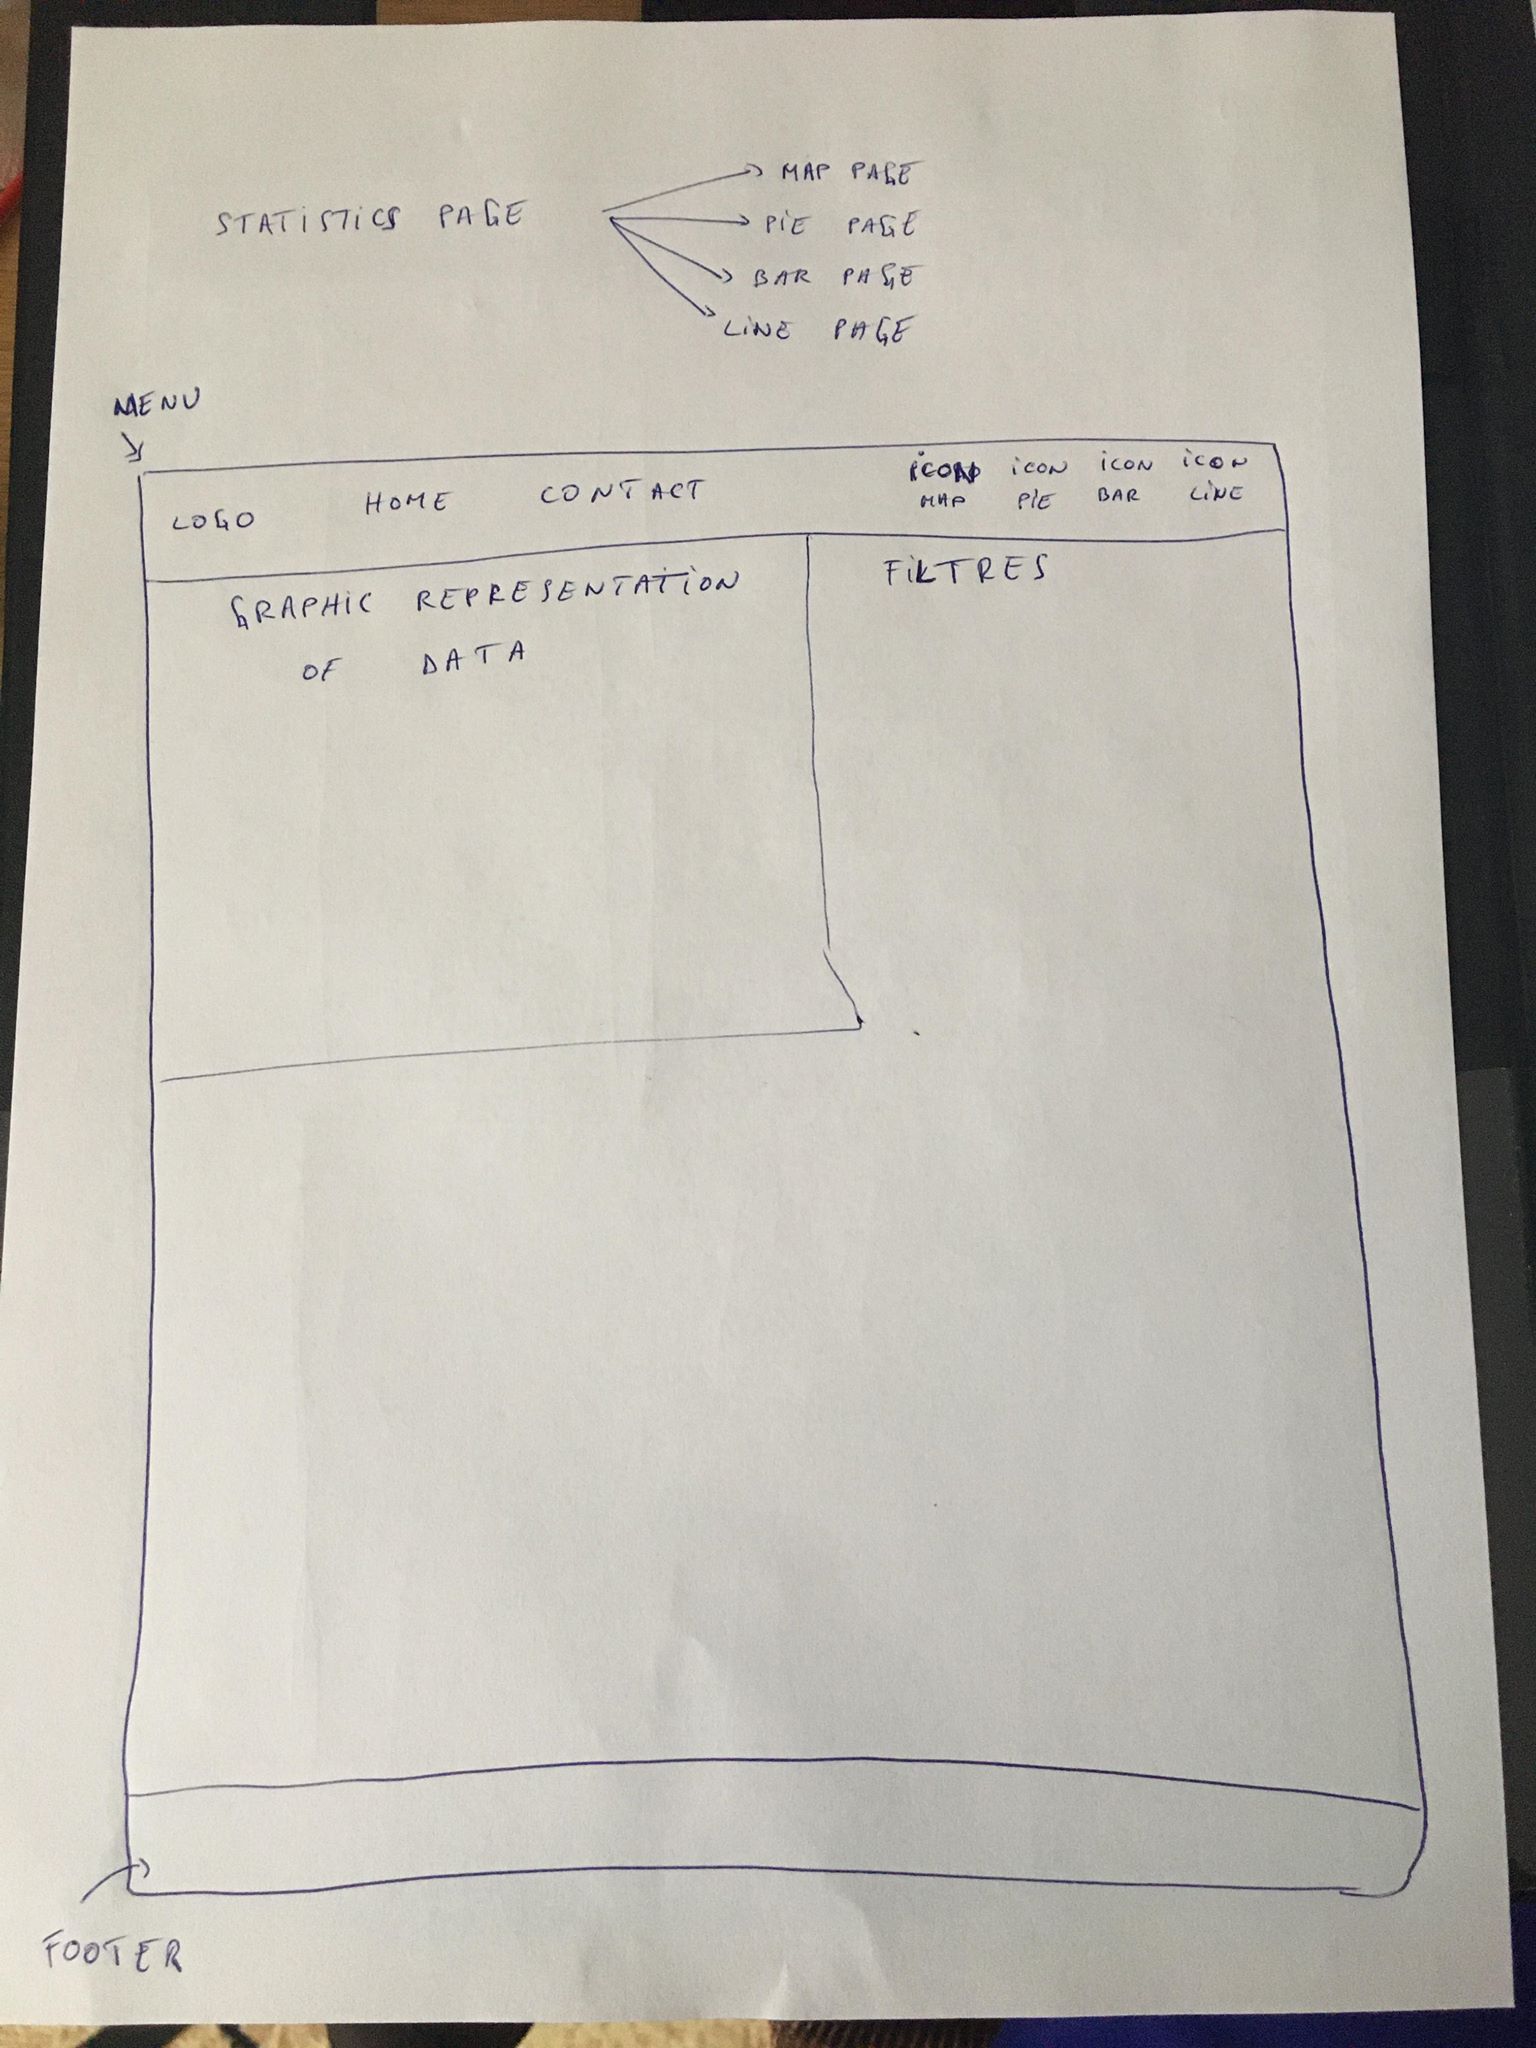 STATISTICS PAGE
MAP PAGE
PIE PAGE
BAR PAGE
LINE PAGE
MENU
LOGO HOME CONTACT
ICON MAP
ICON PIE
ICON BAR
ICON LINE
GRAPHIC REPRESENTATION
OF DATA
FILTRES
FOOTER